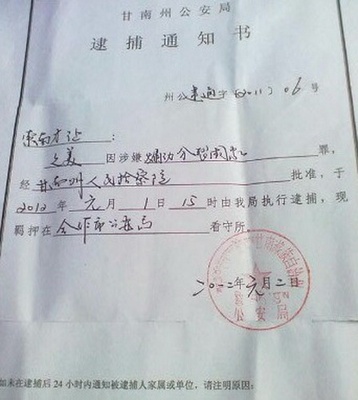 甘南州公安局
逮捕通知书
州公逮通字(2011)06号
之美因涉嫌煽动分裂国家罪，
经甘南州人民检察院批准，于
2012年元月1日15时由我局执行逮捕，现
羁押在合作市公安局看守所。
公安局
二〇一二年元月二日
如未在逮捕后24小时内通知被逮捕人家属或单位，请注明原因：